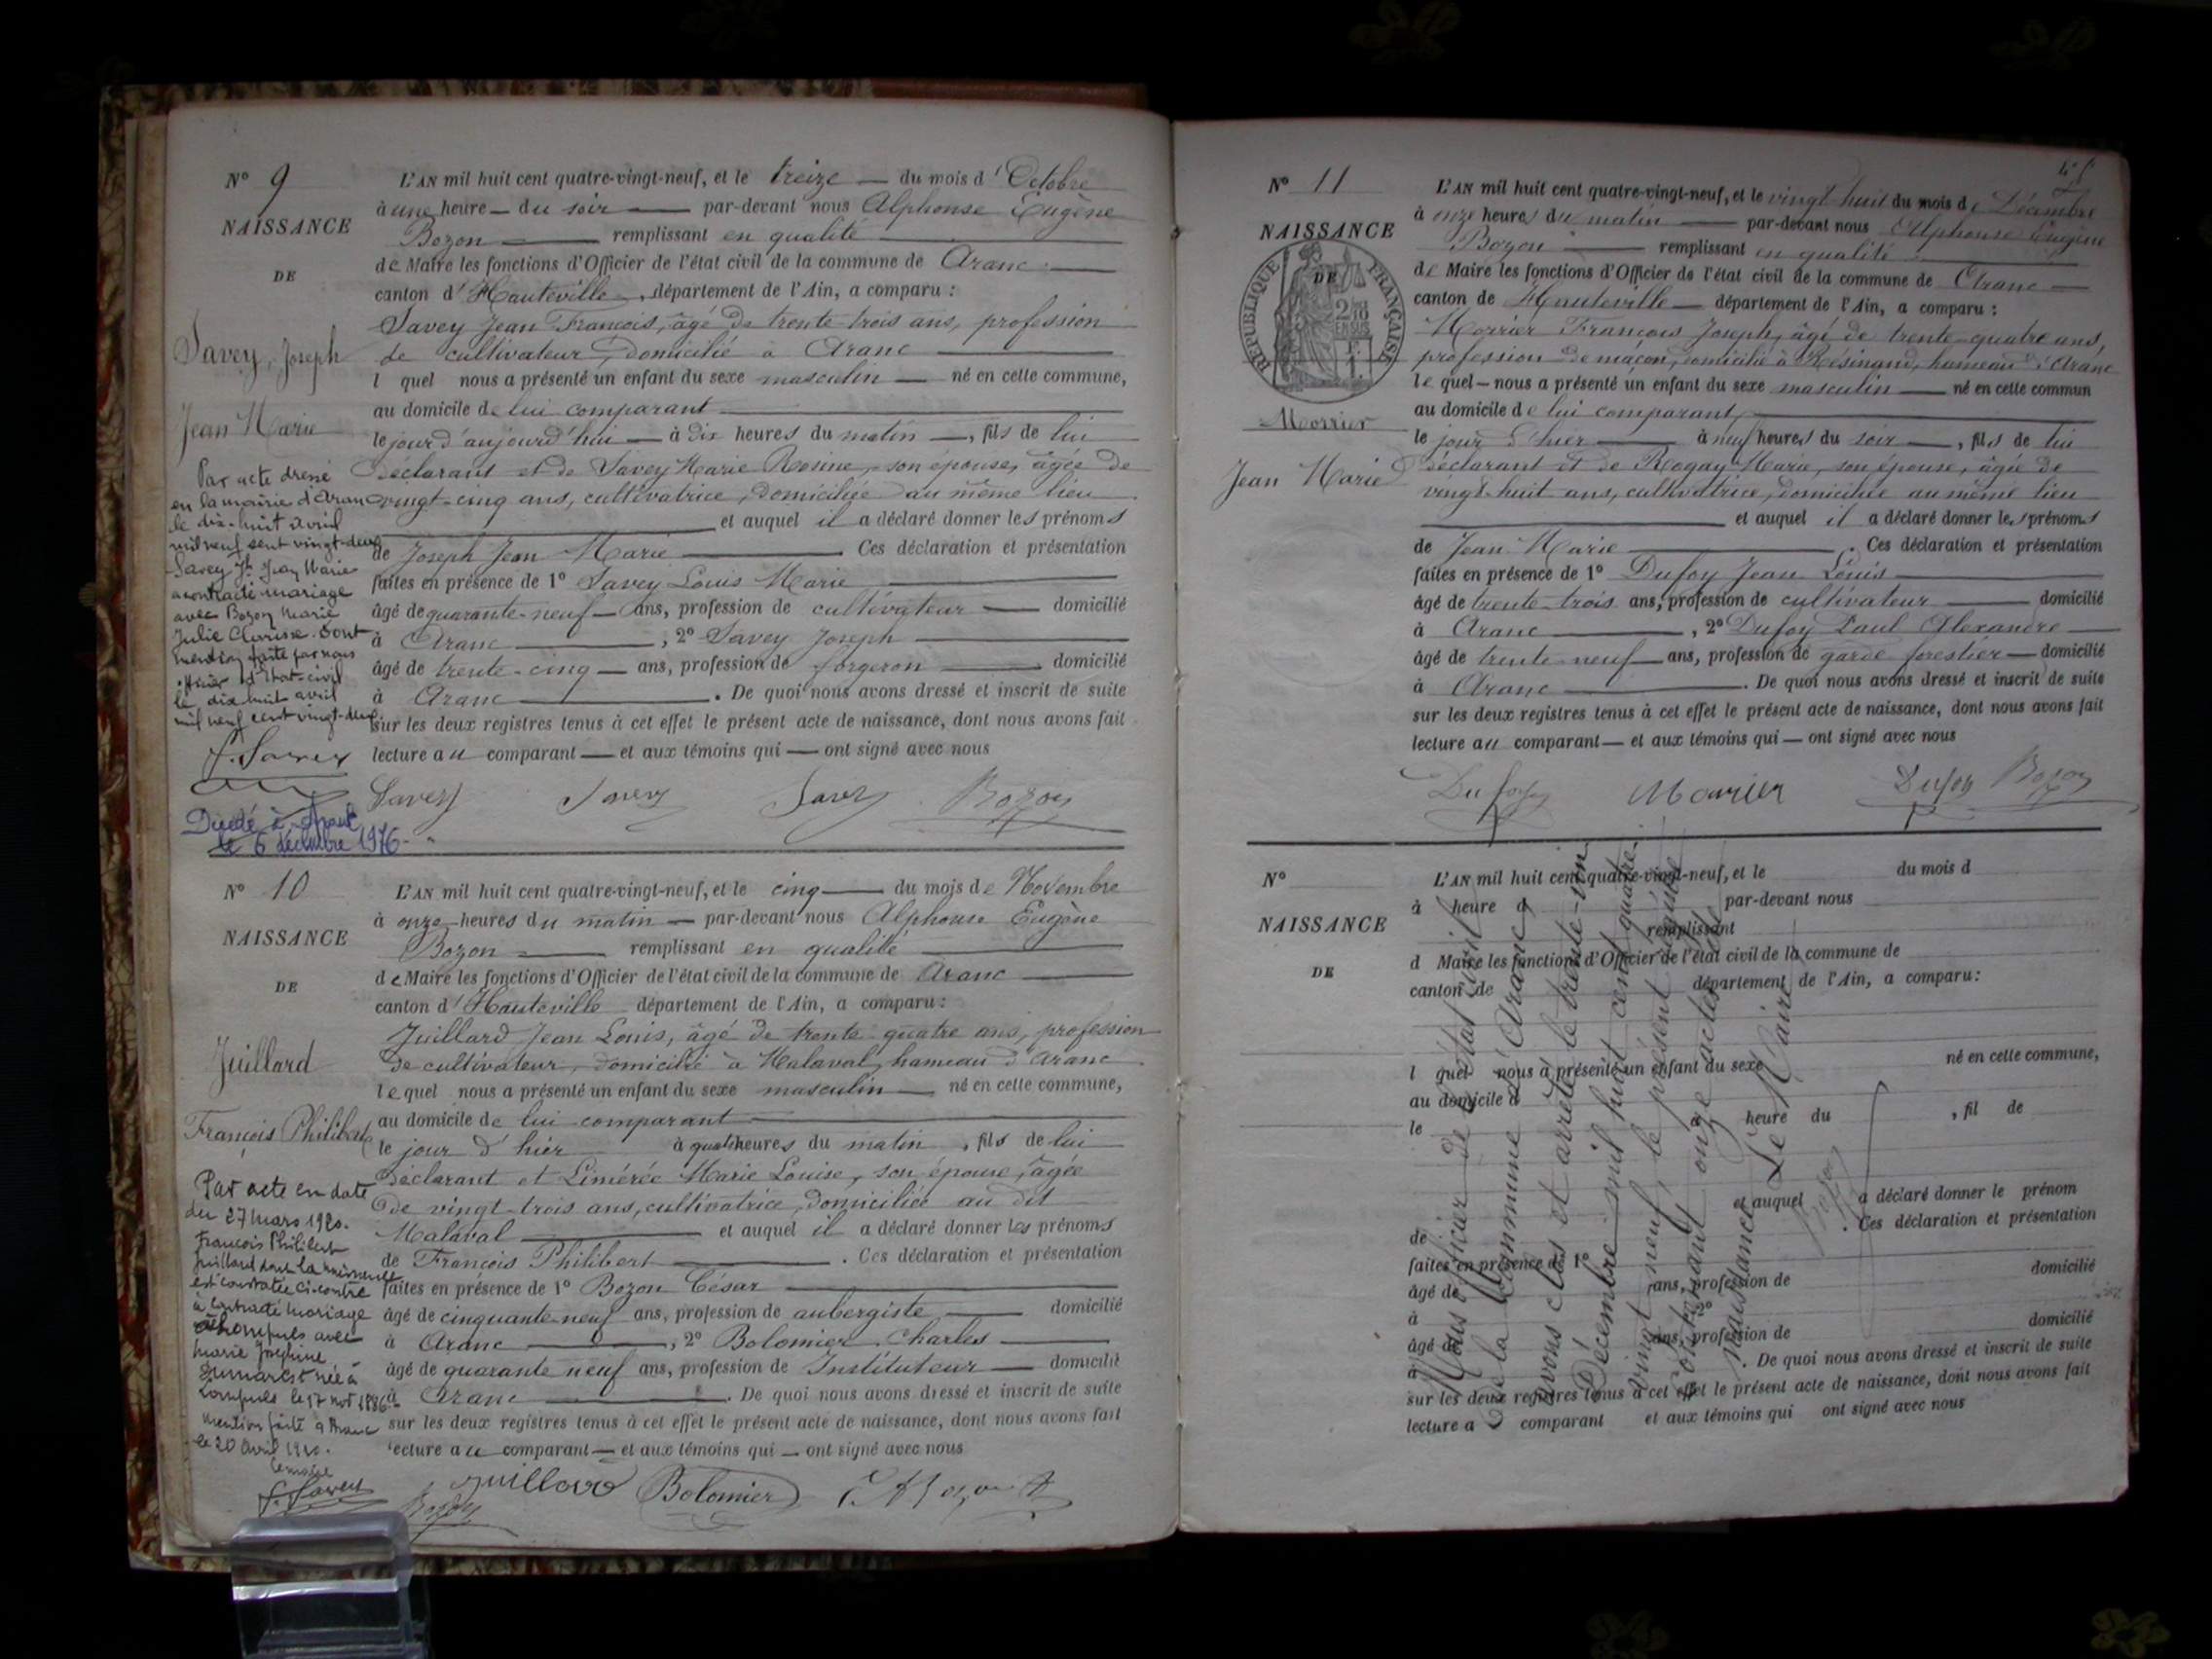 N° 9
NAISSANCE
DE
Savey, Joseph
Jean Marie
Par acte dressé
en la mairie d'Aranc
le dix-huit avril
mil neuf cent vingt-deux
Savey Jh Jean Marie
a contracté mariage
avec Bozon Marie
Julie Clarisse. Dont
mention faite par nous
officier d'Etat-civil
le dix huit avril
mil neuf cent vingt-deux
F. Savey
Décédé à Aranc
le 6 décembre 1976
L'AN mil huit cent quatre-vingt-neuf, et le treize — du mois d'Octobre
à une heure — du soir — par-devant nous Alphonse Eugène
Bozon — remplissant en qualité
de Maire les fonctions d'Officier de l'état civil de la commune de Aranc
canton d'Hauteville, département de l'Ain, a comparu :
Savey Jean François, âgé de trente trois ans, profession
de cultivateur, domicilié à Aranc
l quel nous a présenté un enfant du sexe masculin — né en cette commune,
au domicile de lui comparant
le jour d'aujourd'hui — à dix heures du matin —, fils de lui
déclarant et de Savey Marie Rosine, son épouse, âgée de
vingt-cinq ans, cultivatrice, domiciliée au même lieu
et auquel il a déclaré donner les prénoms
de Joseph Jean Marie — . Ces déclaration et présentation
faites en présence de 1° Savey Louis Marie
âgé de quarante-neuf — ans, profession de cultivateur — domicilié
à Aranc — , 2° Savey Joseph
âgé de trente-cinq — ans, profession de forgeron — domicilié
à Aranc — . De quoi nous avons dressé et inscrit de suite
sur les deux registres tenus à cet effet le présent acte de naissance, dont nous avons fait
lecture au comparant — et aux témoins qui — ont signé avec nous
Savey Savey Savey Bozon
N° 10
NAISSANCE
DE
Juillard
François Philibert
Par acte en date
du 27 mars 1920.
François Philibert
Juillard dont la naissance
est constatée ci-contre
à contracté mariage
avec
Marie Joséphine
née à
le 17 nov 1886
Mention faite à Aranc
le 20 avril 1920.
Le maire
F. Savey
L'AN mil huit cent quatre-vingt-neuf, et le cinq — du mois de Novembre
à onze heures du matin — par-devant nous Alphonse Eugène
Bozon — remplissant en qualité
de Maire les fonctions d'Officier de l'état civil de la commune de Aranc
canton d'Hauteville département de l'Ain, a comparu :
Juillard Jean Louis, âgé de trente quatre ans, profession
de cultivateur, domicilié à Malaval, hameau d'Aranc
lequel nous a présenté un enfant du sexe masculin — né en cette commune,
au domicile de lui comparant
le jour d'hier à quatre heures du matin , fils de lui
déclarant et Limérée Marie Louise, son épouse, âgée
de vingt-trois ans, cultivatrice, domiciliée au dit
Malaval — et auquel il a déclaré donner les prénoms
de François Philibert — . Ces déclaration et présentation
faites en présence de 1° Bozon César
âgé de cinquante-neuf ans, profession de aubergiste — domicilié
à Aranc — , 2° Bolomier Charles
âgé de quarante neuf ans, profession de Instituteur — domicilié
à Aranc — . De quoi nous avons dressé et inscrit de suite
sur les deux registres tenus à cet effet le présent acte de naissance, dont nous avons fait
lecture au comparant — et aux témoins qui — ont signé avec nous
Bozon Juillard Bolomier
45
N° 11
NAISSANCE
DE
RÉPUBLIQUE FRANÇAISE
Morrier
Jean Marie
L'AN mil huit cent quatre-vingt-neuf, et le vingt-huit du mois de Décembre
à onze heures du matin — par-devant nous Alphonse Eugène
Bozon — remplissant en qualité
de Maire les fonctions d'Officier de l'état civil de la commune de Aranc —
canton de Hauteville — département de l'Ain, a comparu :
Morrier François Joseph, âgé de trente-quatre ans,
profession de maçon, domicilié à Résinand, hameau d'Aranc
lequel — nous a présenté un enfant du sexe masculin — né en cette commun
au domicile de lui comparant,
le jour d'hier — à neuf heures du soir —, fils de lui
déclarant et de Rogay Marie, son épouse, âgée de
vingt-huit ans, cultivatrice, domiciliée au même lieu
et auquel il a déclaré donner les prénoms
de Jean Marie — . Ces déclaration et présentation
faites en présence de 1° Dufoy Jean Louis
âgé de trente-trois ans, profession de cultivateur — domicilié
à Aranc — , 2° Dufoy Paul Alexandre
âgé de trente neuf — ans, profession de garde forestier — domicilié
à Aranc — . De quoi nous avons dressé et inscrit de suite
sur les deux registres tenus à cet effet le présent acte de naissance, dont nous avons fait
lecture au comparant — et aux témoins qui — ont signé avec nous
Dufoy Morrier Dufoy Bozon
N°
NAISSANCE
DE
L'AN mil huit cent quatre-vingt-neuf, et le du mois d
à heure d par-devant nous
remplissant
d Maire les fonctions d'Officier de l'état civil de la commune de
canton de département de l'Ain, a comparu :
l quel nous a présenté un enfant du sexe né en cette commune,
au domicile d
le à heure du , fil de
et auquel a déclaré donner le prénom
de . Ces déclaration et présentation
faites en présence de 1°
âgé de ans, profession de domicilié
à , 2°
âgé de ans, profession de domicilié
à . De quoi nous avons dressé et inscrit de suite
sur les deux registres tenus à cet effet le présent acte de naissance, dont nous avons fait
lecture a comparant et aux témoins qui ont signé avec nous
Nous officier de l'état civil
de la Commune d'Aranc,
avons clos et arrêté le trente-un
Décembre mil huit cent quatre-
vingt neuf, le présent registre
contenant onze actes de
naissance. Le Maire
Bozon